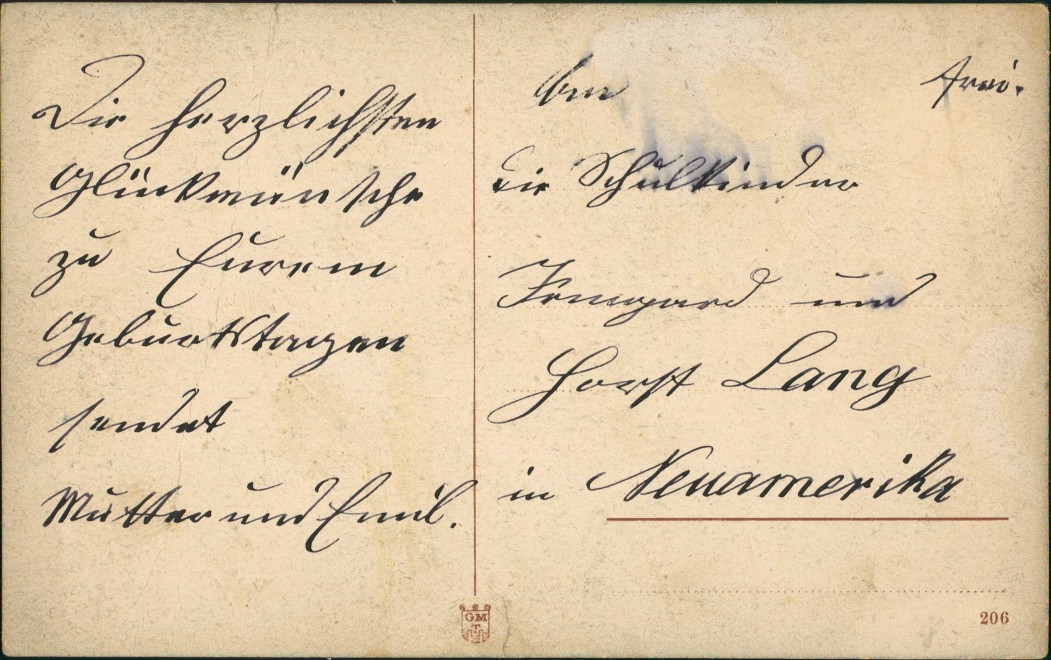 Die herzlichsten
Glückwünsche
zu Eurem
Geburtstagen
sendet
Mutter und Emil.
An
frei.
die Schulkinder
Irmgard und
Horst Lang
in Neuamerika
GM
206